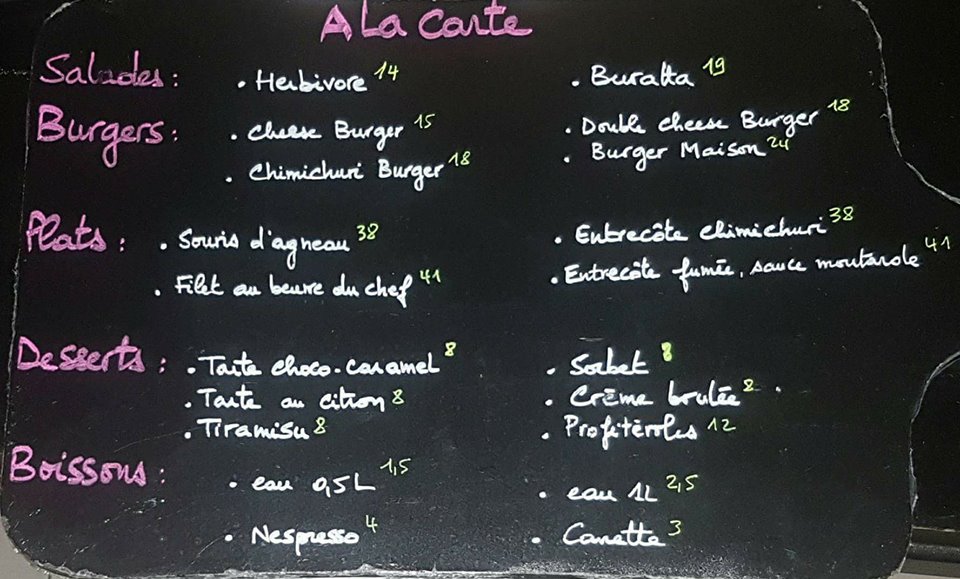 A La Carte
Salades : • Herbivore 14 • Buratta 19
Burgers : • Cheese Burger 15 • Double cheese Burger 18
• Chimichuri Burger 18 • Burger Maison 24
Plats : • Souris d'agneau 38 • Entrecôte chimichuri 38
• Filet au beurre du chef 41 • Entrecôte fumée, sauce moutarde 41
Desserts : • Tarte choco-caramel 8 • Sorbet 8
• Tarte au citron 8 • Crème brulée 8
• Tiramisu 8 • Profiteroles 12
Boissons : • eau 0,5L 1,5 • eau 1L 2,5
• Nespresso 4 • Canette 3